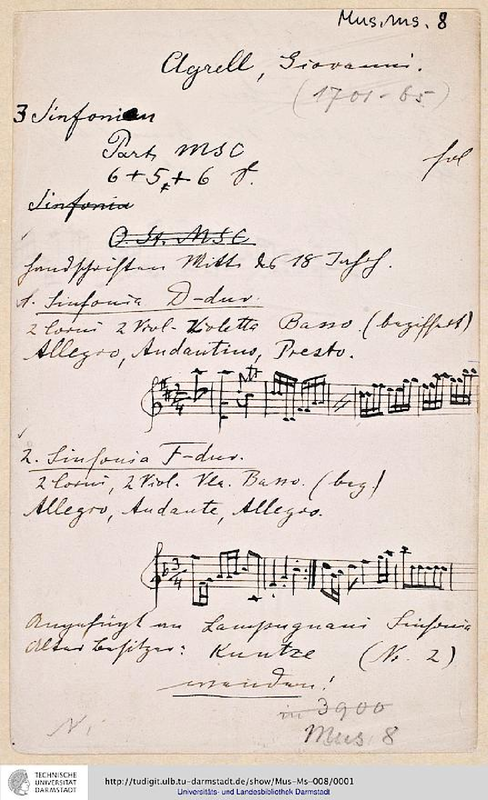 Mus. ms. 8
Agrell, Giovanni.
(1701-65)
3 Sinfonien
Part. MSC
6+5+6 f.
fol
Sinfonia
O. St. MSC
Handschriften Mitte des 18 Jahrh.
1. Sinfonia D-dur.
2 Corni 2 Viol. Violetta Basso. (beziffert)
Allegro, Andantino, Presto.
2. Sinfonia F-dur.
2 Corni, 2 Viol. Vla. Basso. (bez.)
Allegro, Andante, Allegro.
Angefügt an Lampugnani Sinfonia
Alter Besitzer: Kuntze (No. 2)
wenden!
in 3900
Mus. 8
TECHNISCHE
UNIVERSITÄT
DARMSTADT
http://tudigit.ulb.tu-darmstadt.de/show/Mus-Ms-008/0001
Universitäts- und Landesbibliothek Darmstadt